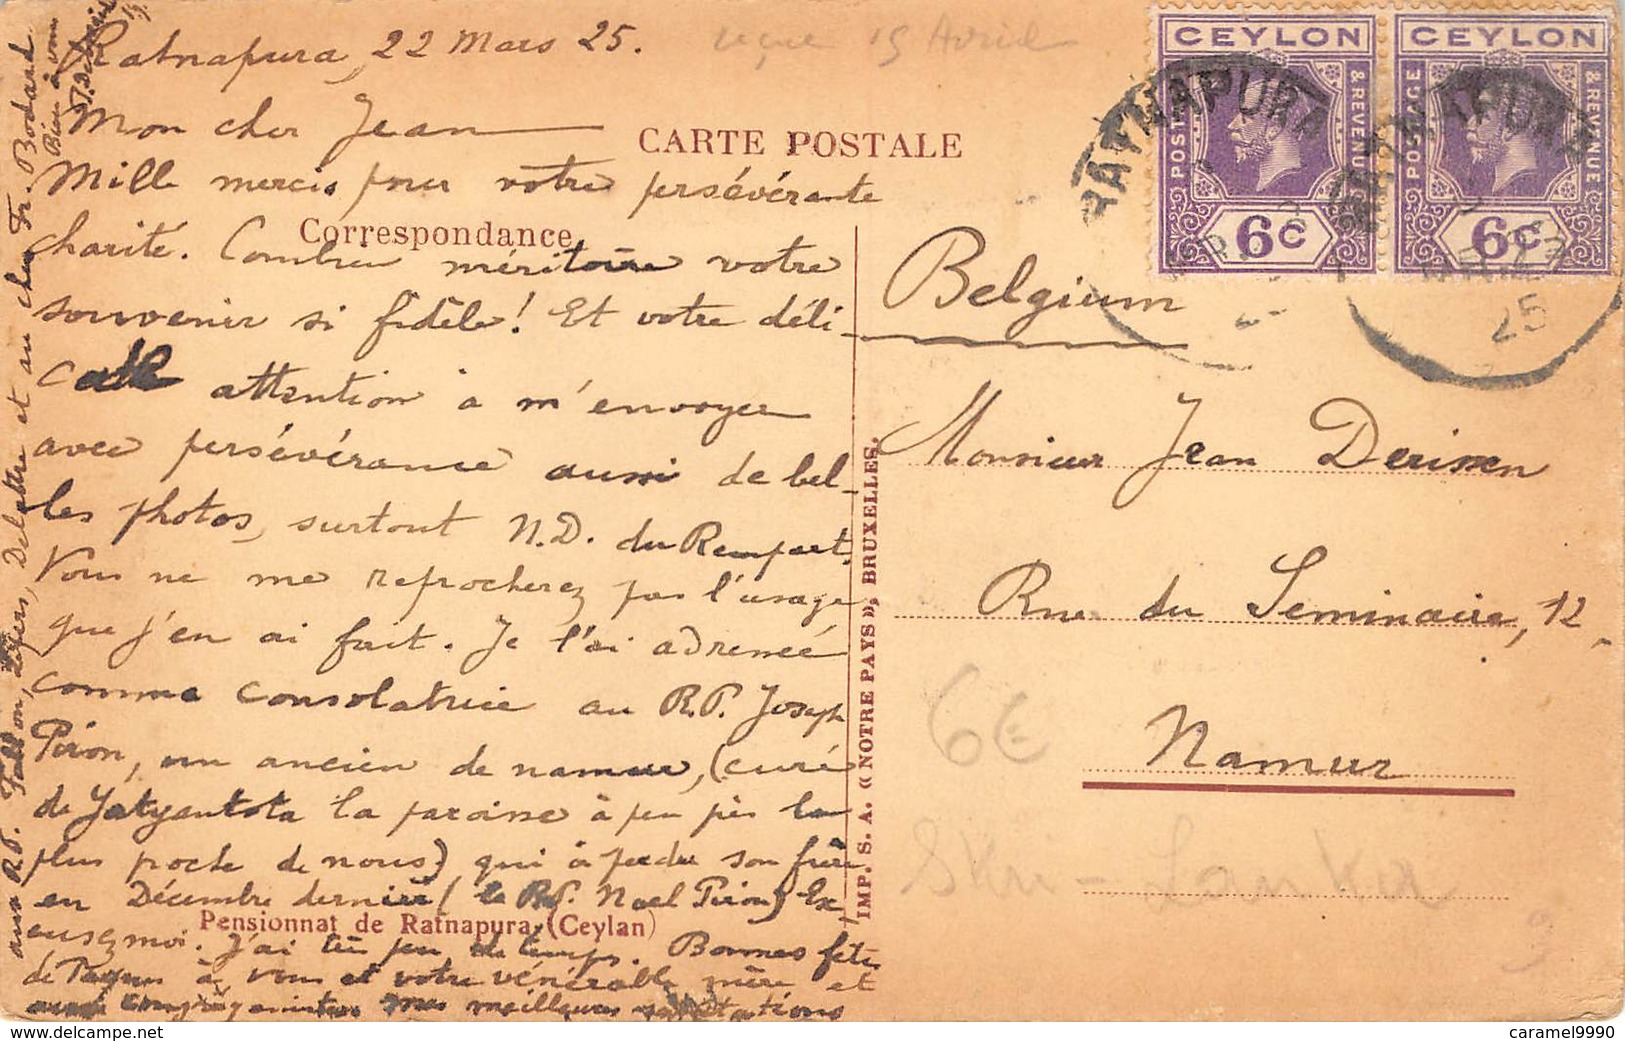 Ratnapura, 22 Mars 25.
reçue 15 Avril
Mon cher Jean
CARTE POSTALE
Mille mercis pour votre persévérante
Correspondance
charité. Combien méritoire votre
souvenir si fidèle! Et votre déli-
cate attention à m'envoyer
avec persévérance aussi de bel-
les photos, surtout N.D. du Rempart.
Vous ne me reprocherez pas l'usage
que j'en ai fait. Je l'ai adressée
comme consolatrice au R.P. Joseph
Piron, un ancien de Namur, (curé
de Yatyantota la paroisse à peu près la
plus proche de nous) qui a perdu son frère
en Décembre dernier (le R.P. Noel Piron) Ex-
Pensionnat de Ratnapura (Ceylan)
cusez moi. J'ai très peu de temps. Bonnes fêtes
de Pâques à vous et votre vénérable mère et
meilleures salutations
aux R.P. Fallon, Delattre et au cher Fr. Bodard
Bien à vous
IMP. S. A. « NOTRE PAYS », BRUXELLES.
CEYLON
POSTAGE
& REVENUE
6c
CEYLON
POSTAGE
& REVENUE
6c
RATNAPURA
RATNAPURA
25
Belgium
Monsieur Jean Derissen
Rue du Séminaire, 12
Namur
6€
Skri-Lanka
caramel9990